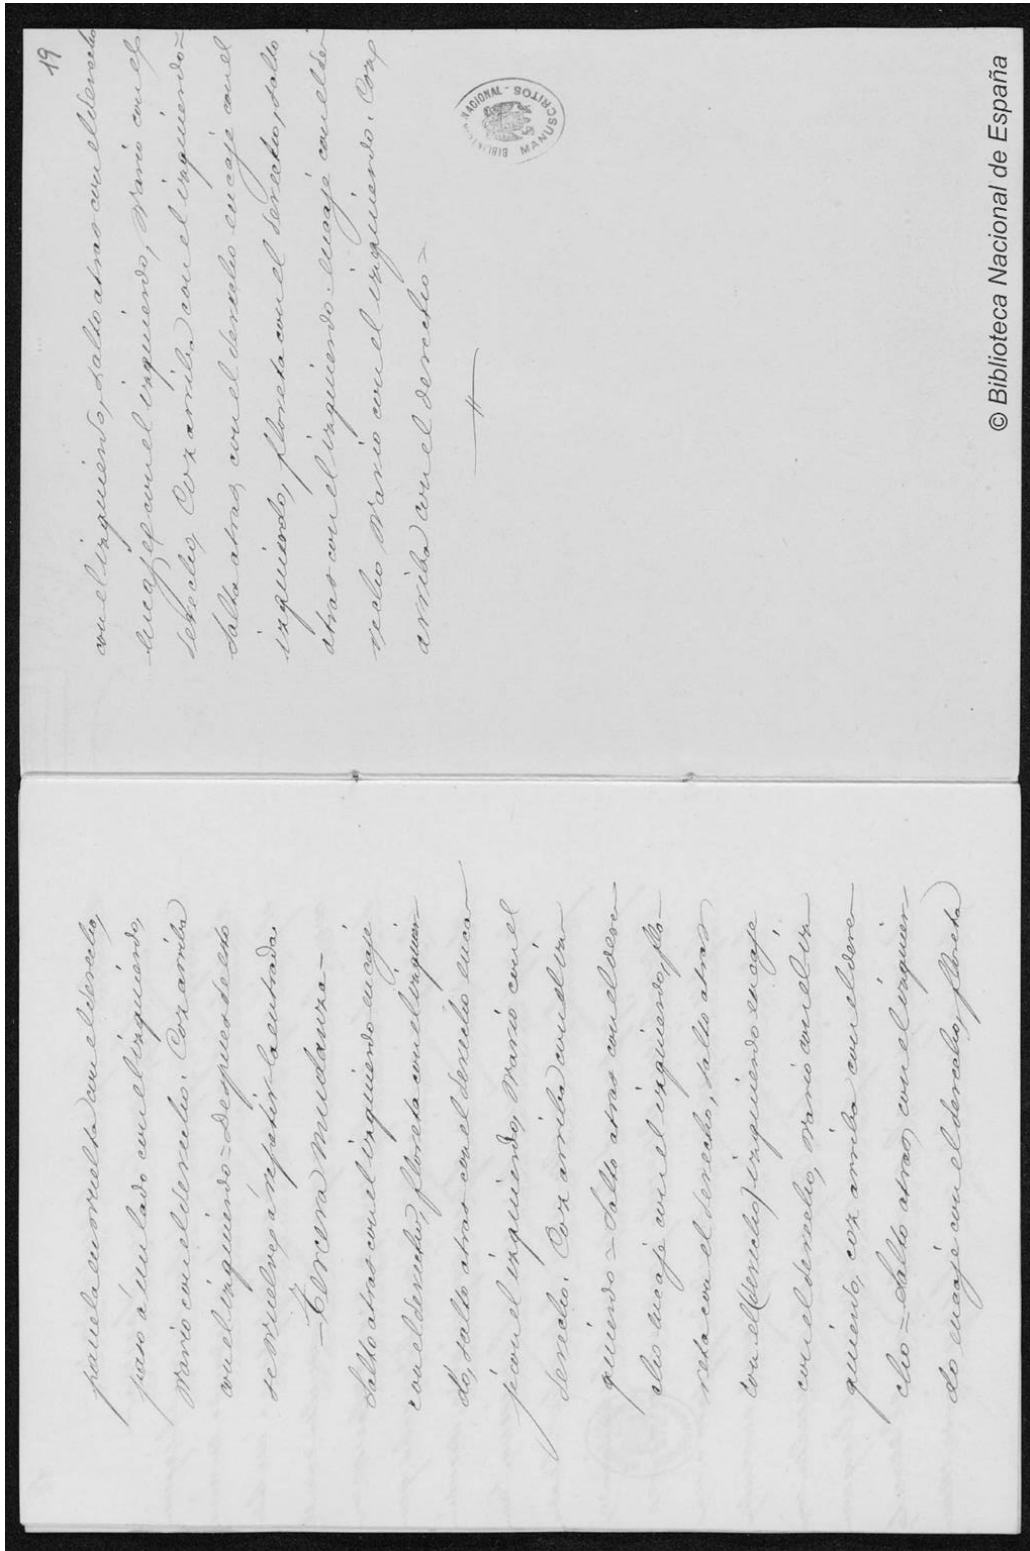 paso en la vuelta con el derecho,
paso á un lado con el izquierdo,
vario con el derecho. Coz arriba
con el izquierdo = Despues de esto
se vuelve á repetir la entrada.
- Tercera mudanza -
Salto atras con el izquierdo encaje
con el derecho, floreta con el izquier
do, salto atras con el derecho enca
je con el izquierdo, vario con el
derecho. Coz arriba con el iz
quierdo = Salto atras con el dere
cho encaje con el izquierdo, flo
reta con el derecho, salto atras
con el izquierdo encaje
con el derecho, vario con el iz
quierdo, coz arriba con el dere
cho = Salto atras, con el izquier
do encaje con el derecho, floreta
19
con el izquierdo, salto atras con el derecho
encaje con el izquierdo, vario con el
derecho, Coz arriba con el izquierdo =
Salto atras, con el derecho encaje con el
izquierdo, floreta con el derecho, salto
atras con el izquierdo encaje con el de
recho vario con el izquierdo. Coz
arriba con el derecho =
BIBLIOTECA NACIONAL - MANUSCRITOS
© Biblioteca Nacional de España